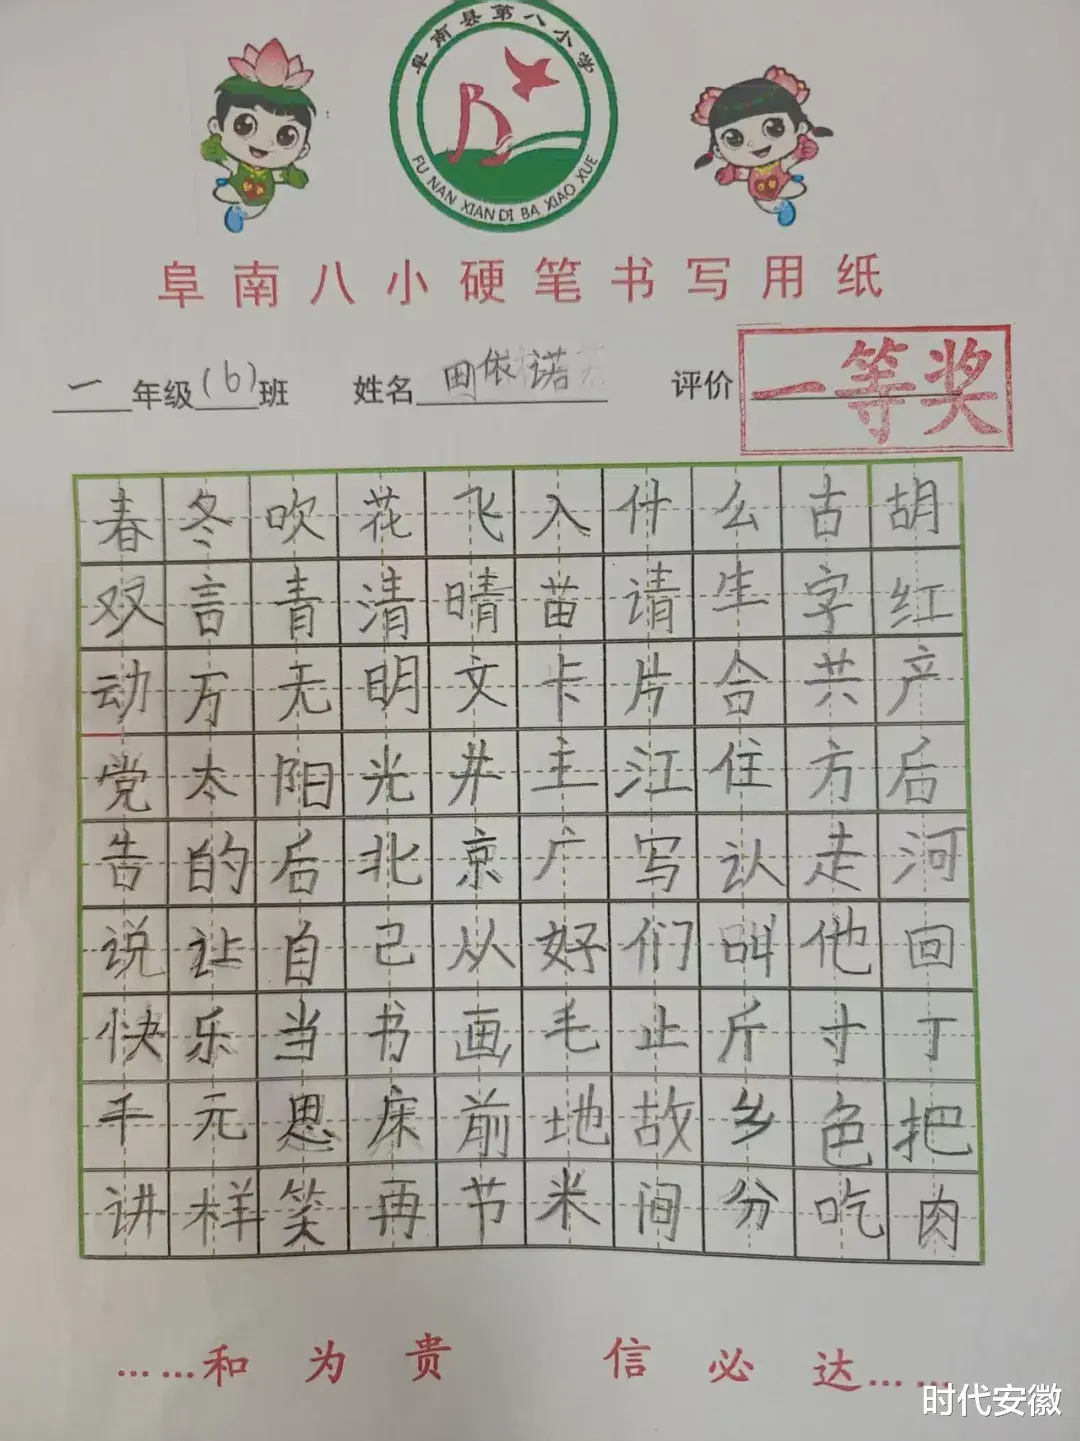 阜南县第八小学
FU NAN XIAN DI BA XIAO XUE
阜南八小硬笔书写用纸
一年级(6)班 姓名田依诺 评价一等奖
春冬吹花飞入什么古胡
双言青清晴苗请生字红
动万无明文卡片合共产
党太阳光井主江住方后
告的后北京广写认走河
说让自己从好们叫他回
快乐当书画毛止斤寸丁
千元思床前地故乡色把
讲样笑再节米间分吃肉
……和为贵 信必达……
时代安徽